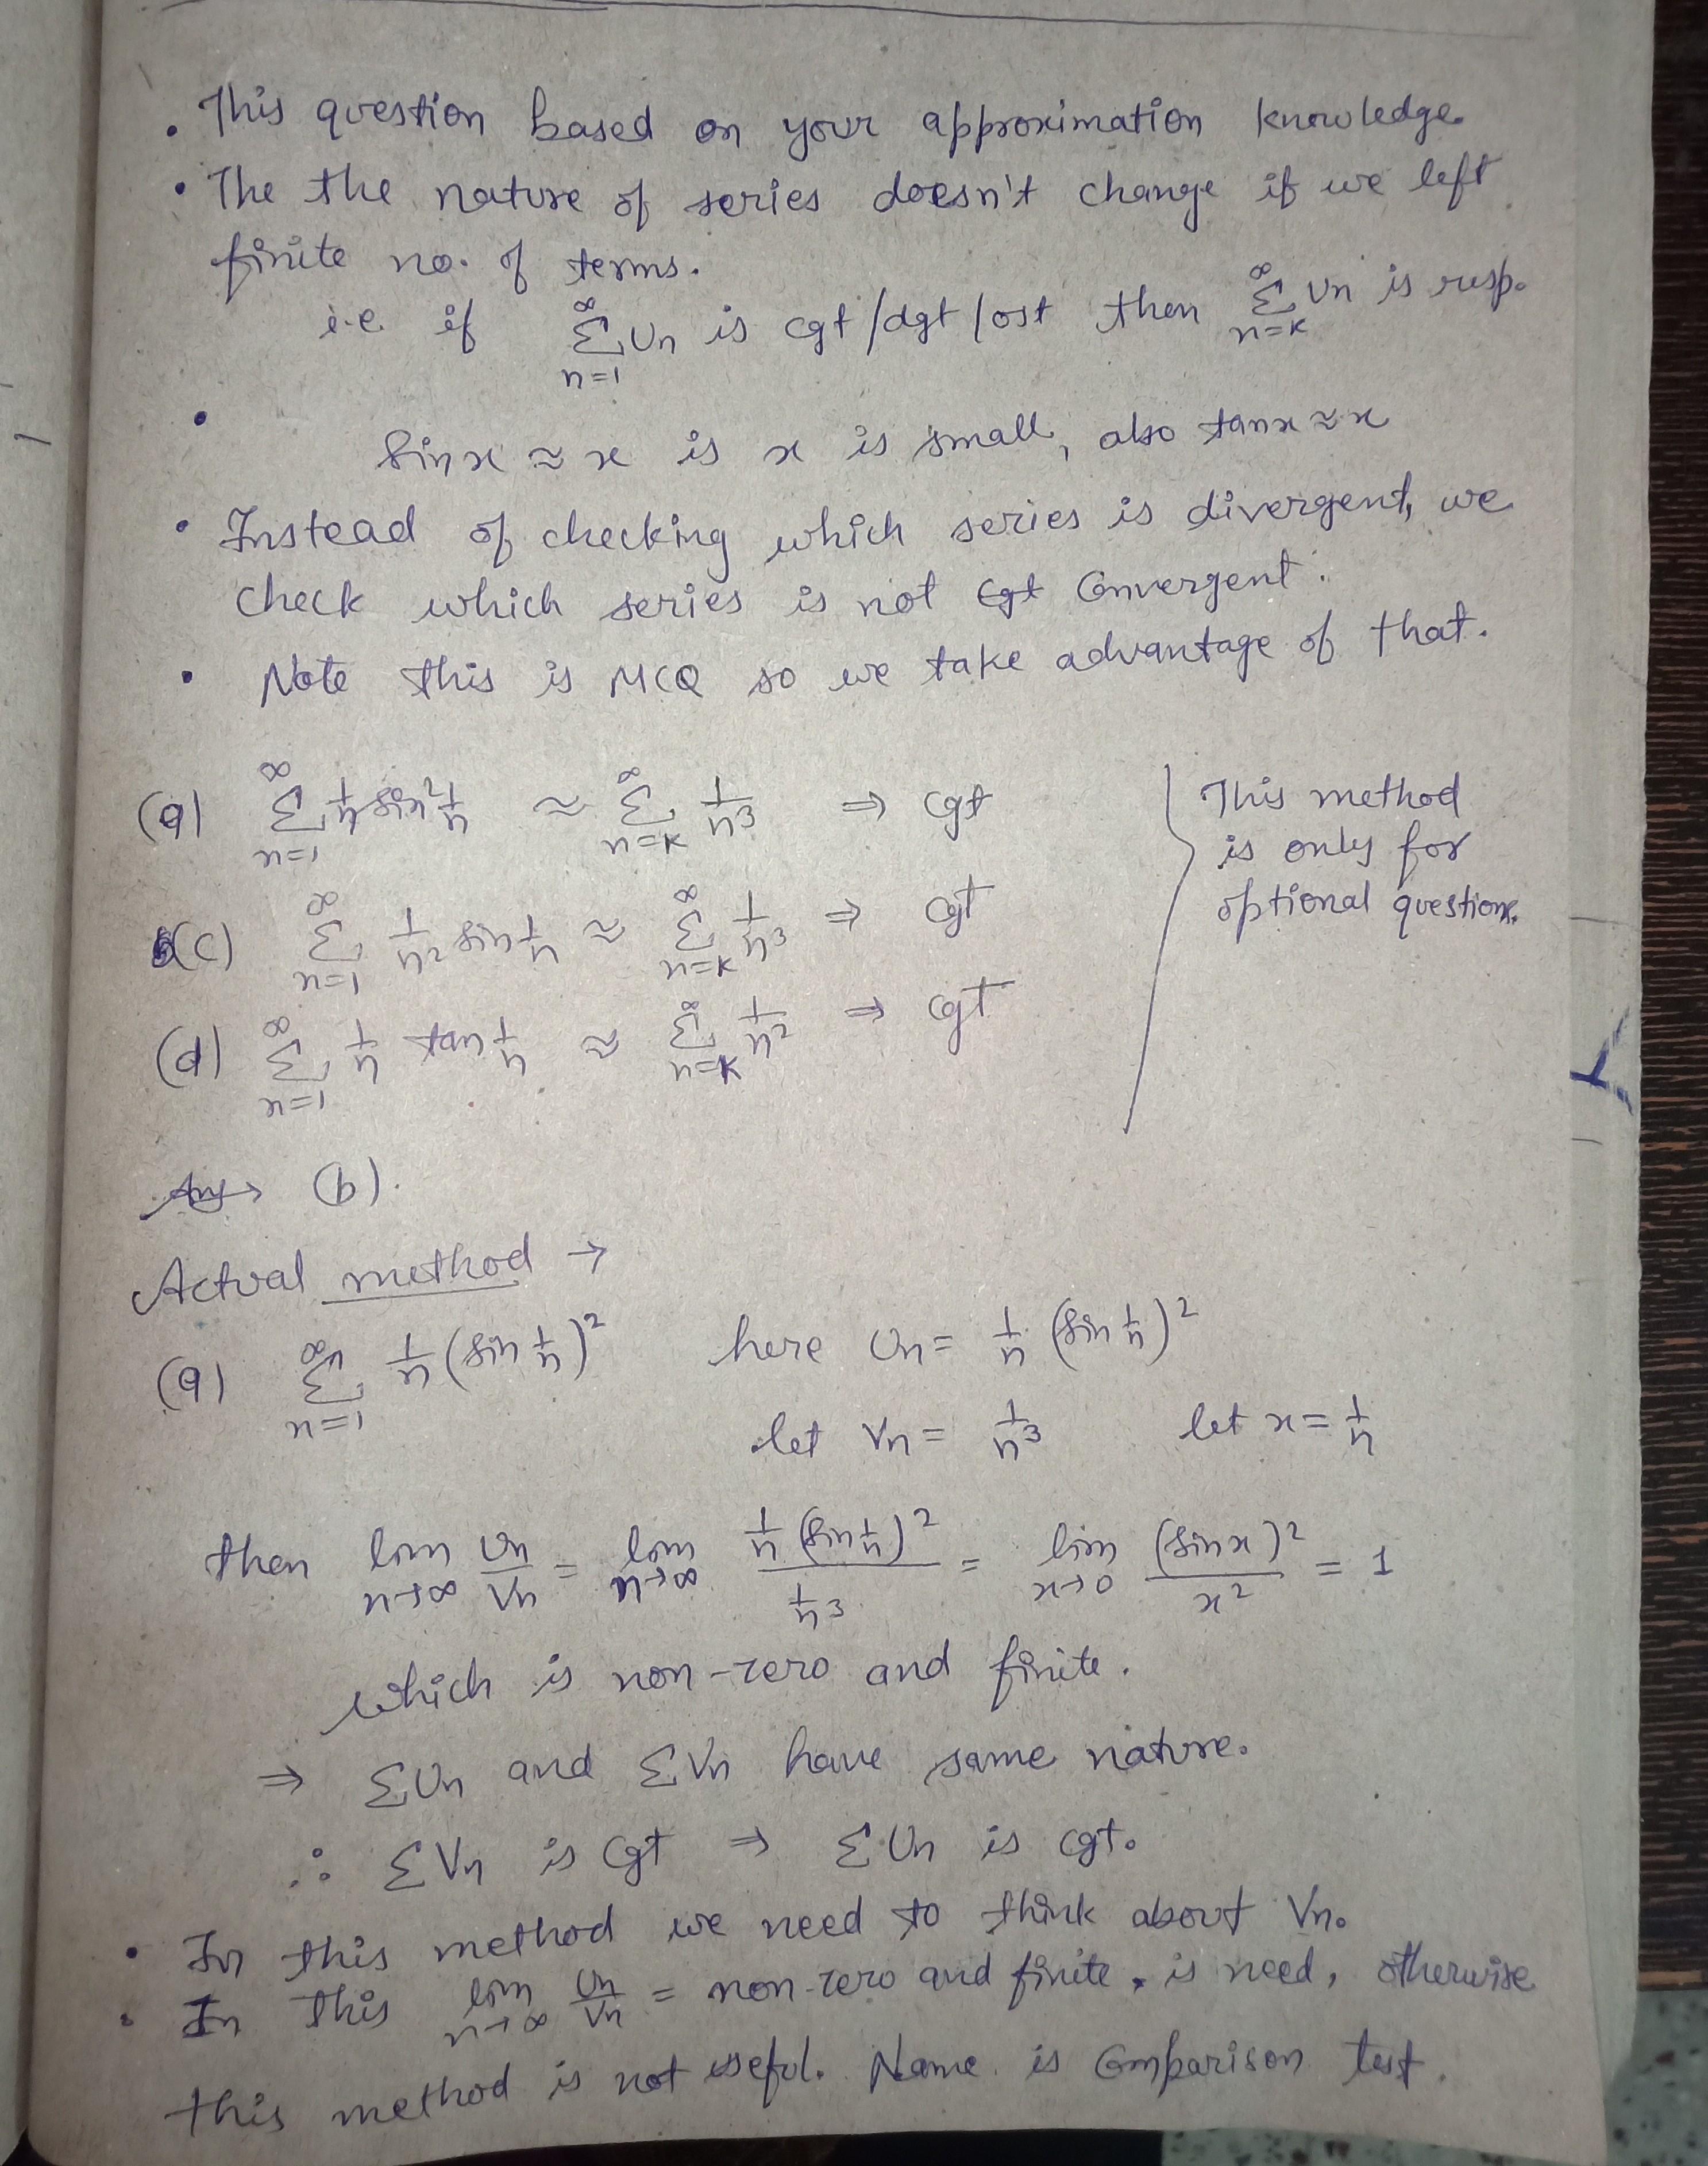 • This question based on your approximation knowledge.
• The the nature of series doesn't change if we left
finite no. of terms.
i.e. if ∞Σn=1 Un is cgt/dgt/ost then ∞Σn=k Un is resp.
•
Sinx ≈ x is x is small, also tanx ≈ x
• Instead of checking which series is divergent, we
check which series is not Cgt Convergent.
• Note this is MCQ so we take advantage of that.
(a) ∞Σn=1 1/n sin² 1/n ≈ ∞Σn=k 1/n³ ⇒ cgt
(c) ∞Σn=1 1/n² sin 1/n ≈ ∞Σn=k 1/n³ ⇒ cgt
(d) ∞Σn=1 1/n tan 1/n ≈ ∞Σn=k 1/n² ⇒ cgt
This method
is only for
optional questions.
Ans→ (b).
Actual method →
(a) ∞Σn=1 1/n (sin 1/n)² here Un = 1/n (sin 1/n)²
let Vn = 1/n³ let x = 1/n
then lim n→∞ Un/Vn = lim n→∞ (1/n (sin 1/n)²)/(1/n³) = lim x→0 (sinx)²/x² = 1
which is non-zero and finite.
⇒ ΣUn and ΣVn have same nature.
∴ ΣVn is Cgt ⇒ ΣUn is cgt.
• In this method we need to think about Vn.
• In this lim n→∞ Un/Vn = non-zero and finite, is need, otherwise
this method is not useful. Name is Comparison test.